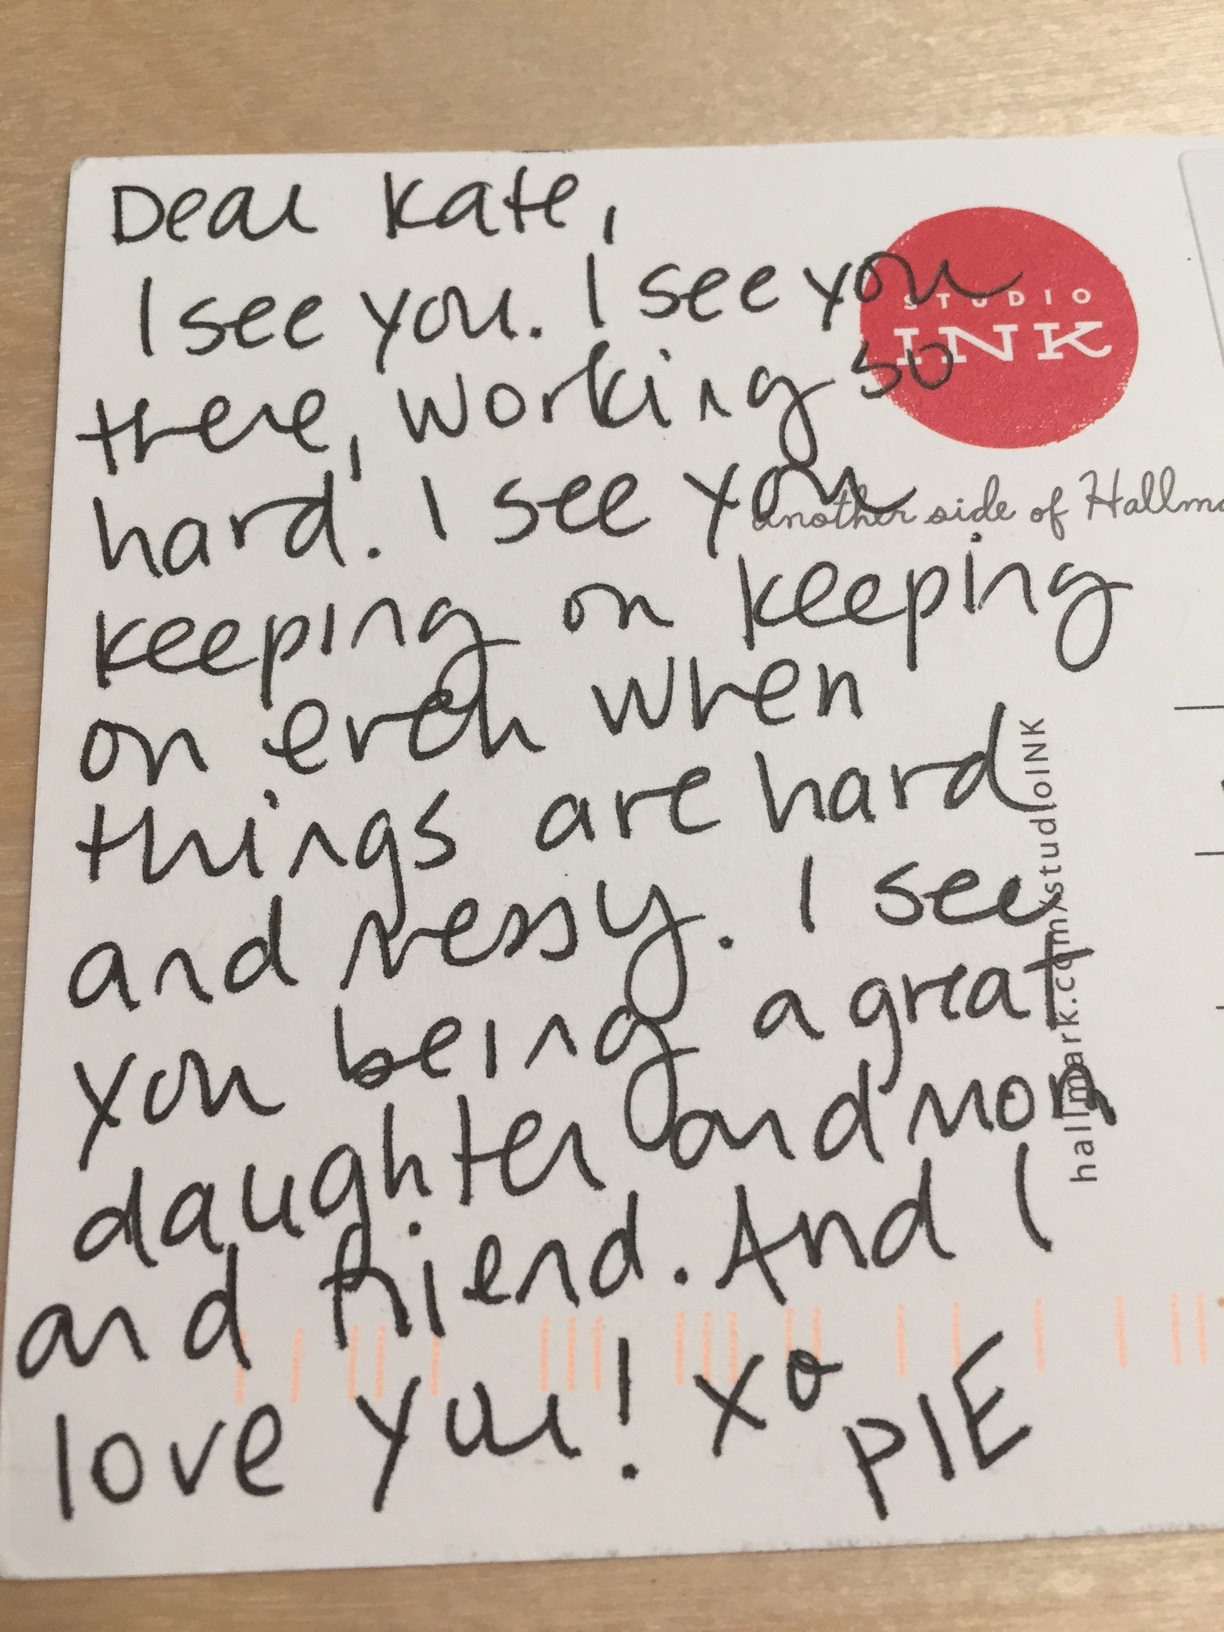 Dear Kate,
I see you. I see you
there, working so
hard. I see you
keeping on keeping
on even when
things are hard
and messy. I see
you being a great
daughter and mom
and friend. And I
love you! xo
PIE
STUDIO
INK
another side of
hallmark.com/studioINK